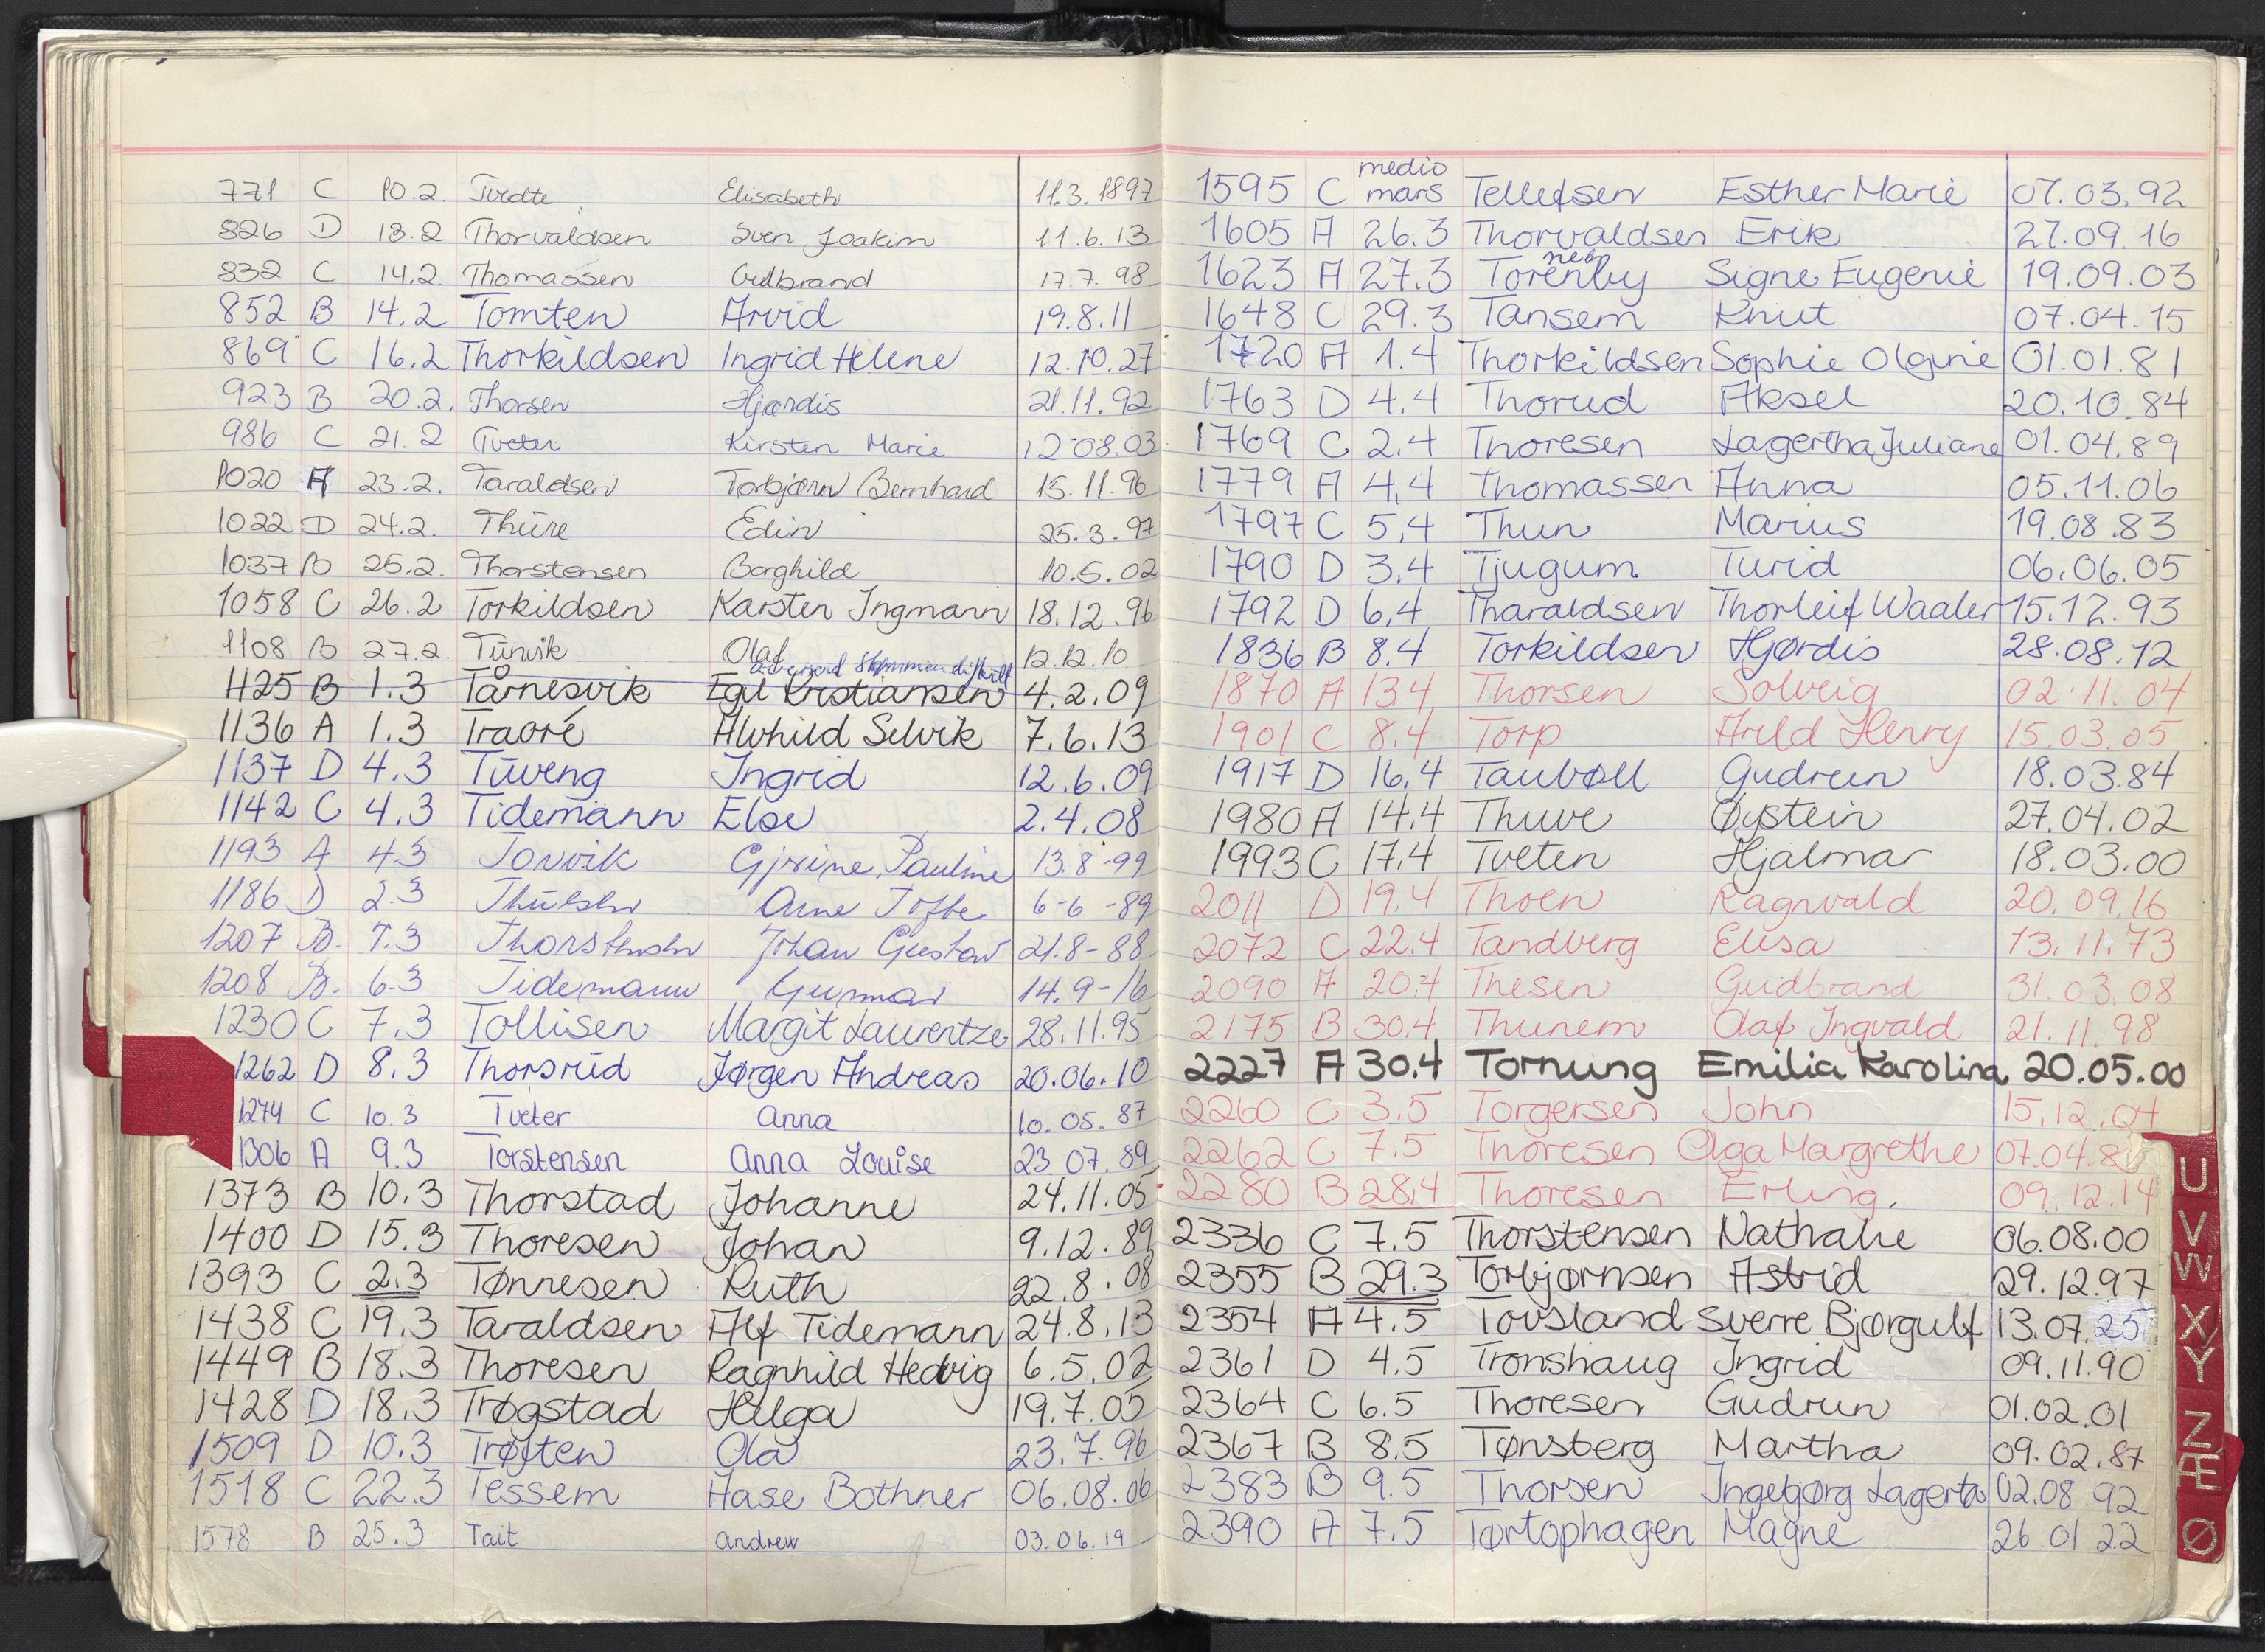 771 C 10.2. Tvedte Elisabeth 11.3.1897
826 D 13.2 Thorvaldsen Sven Joakim 11.6.13
832 C 14.2. Thomassen Gulbrand 17.7.98
852 B 14.2 Tomten Arvid 19.8.11
869 C 16.2 Thorkildsen Ingrid Helene 12.10.27
923 B 20.2. Thorsen Hjørdis 21.11.92
986 C 21.2 Tveter Kirsten Marie 12.08.03
1020 A 23.2. Taraldsen Torbjørn Bernhard 15.11.96
1022 D 24.2. Thure Edin 25.3.97
1037 B 25.2. Thorstensen Borghild 10.5.02
1058 C 26.2 Torkildsen Karsten Ingmann 18.12.96
1108 B 27.2. Turvik Olaf 12.12.10
1125 B 1.3 Tårnesvik Egil Kristiansen 4.2.09
1136 A 1.3 Traoré Alvhild Selvik 7.6.13
1137 D 4.3 Tuveng Ingrid 12.6.09
1142 C 4.3 Tidemann Else 2.4.08
1193 A 4.3 Torvik Pauline 13.8-99
1186 D 2.3 Arne Tofte 6-6-89
1207 B. 7.3 Thorstensen Johan Gustav 21.8-88
1208 B. 6.3 Tidemann Gunnar 14.9-16
1230 C 7.3 Tollisen Margit Laurentze 28.11.95
1262 D 8.3 Thorsrud Jørgen Andreas 20.06.10
1274 C 10.3 Tveter Anna 10.05.87
1306 A 9.3 Torstensen Anna Louise 23.07.89
1373 B 10.3 Thorstad Johanne 24.11.05
1400 D 15.3 Thoresen Johan 9.12.89
1393 C 2.3 Tønnesen Ruth 22.8.08
1438 C 19.3 Taraldsen Alf Tidemann 24.8.13
1449 B 18.3 Thoresen Ragnhild Hedvig 6.5.02
1428 D 18.3 Trøgstad Helga 19.7.05
1509 D 10.3 Trøften Ola 23.7.96
1518 C 22.3 Tessem Aase Bothner 06.08.06
1578 B 25.3 Tait Andrew 03.06.19
medio
1595 C mars Tellefsen Esther Marie 07.03.92
1605 A 26.3 Thorvaldsen Erik 27.09.16
1623 A 27.3 Signe Eugenie 19.09.03
1648 C 29.3 Tansem Knut 07.04.15
1720 A 1.4 Thorkildsen Sophie Olgine 01.01.81
1763 D 4.4 Thorud Aksel 20.10.84
1769 C 2.4 Thoresen Lagertha Juliane 01.04.89
1779 A 4.4 Thomassen Anna 05.11.06
1797 C 5.4 Thun Marius 19.08.83
1790 D 3.4 Tjugum Turid 06.06.05
1792 D 6.4 Tharaldsen Thorleif Waaler 15.12.93
1836 B 8.4 Torkildsen Hjørdis 28.08.12
1870 A 13.4 Thorsen Solveig 02.11.04
1901 C 8.4 Torp Arild Henry 15.03.05
1917 D 16.4 Taubøll Gudrun 18.03.84
1980 A 14.4 Thuve Øystein 27.04.02
1993 C 17.4 Tveten Hjalmar 18.03.00
2011 D 19.4 Thoen Ragnvald 20.09.16
2072 C 22.4 Tandberg Elisa 13.11.73
2090 A 20.4 Thesen Gudbrand 31.03.08
2175 B 30.4 Thunem Olaf Ingvald 21.11.98
2227 A 30.4 Tornung Emilia Karolina 20.05.00
2260 C 3.5 Torgersen John 15.12.04
2262 C 7.5 Thoresen Olga Margrethe 07.04.8
2280 B 28.4 Thoresen Erling. 09.12.14
2336 C 7.5 Thorstensen Nathalie 06.08.00
2355 B 29.3 Torbjørnsen Astrid 29.12.97
2354 A 4.5 Tovsland Sverre Bjørgulf 13.07.25
2361 D 4.5 Tronshaug Ingrid 09.11.90
2364 C 6.5 Thoresen Gudrun 01.02.01
2367 B 8.5 Tønsberg Martha 09.02.87
2383 B 9.5 Thorsen Ingebjørg Lagerta 02.08.92
2390 A 7.5 Tørtophagen Magne 26.01.22
U
V
W
X
Y
Z
Æ
Ø